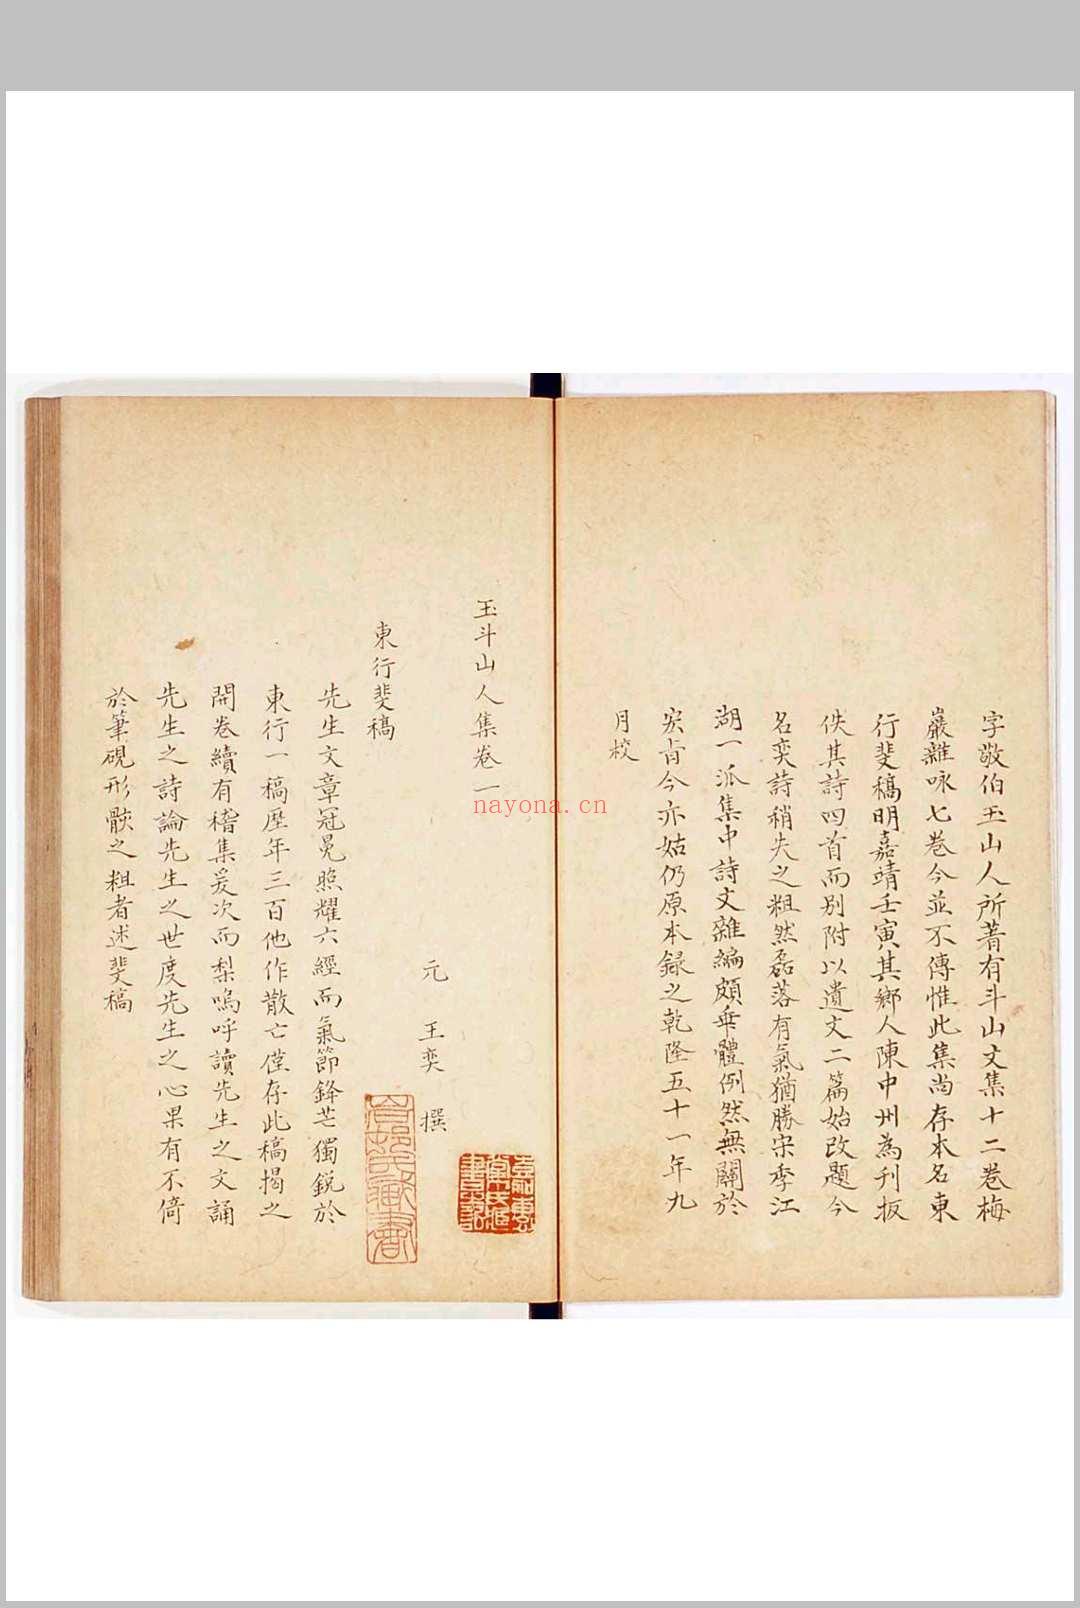 字敬伯玉山人所著有斗山文集十二卷梅
巖雜咏七卷今並不傳惟此集尚存本名東
行斐稿明嘉靖壬寅其鄉人陳中州為刊板
佚其詩四首而别附以遺文二篇始改題今
名奕詩稍失之粗然磊落有氣猶勝宋季江
湖一派集中詩文雜編頗乖體例然無關於
宏旨今亦姑仍原本録之乾隆五十一年九
月校
玉斗山人集卷一
元 王奕 撰
東行斐稿
先生文章冠冕照耀六經而氣節鋒芒獨鋭於
東行一稿歷年三百他作散亡僅存此稿揭之
開卷續有稽集爰次而梨嗚呼讀先生之文誦
先生之詩論先生之世度先生之心果有不倚
於筆硯形骸之粗者述斐稿
nayona.cn